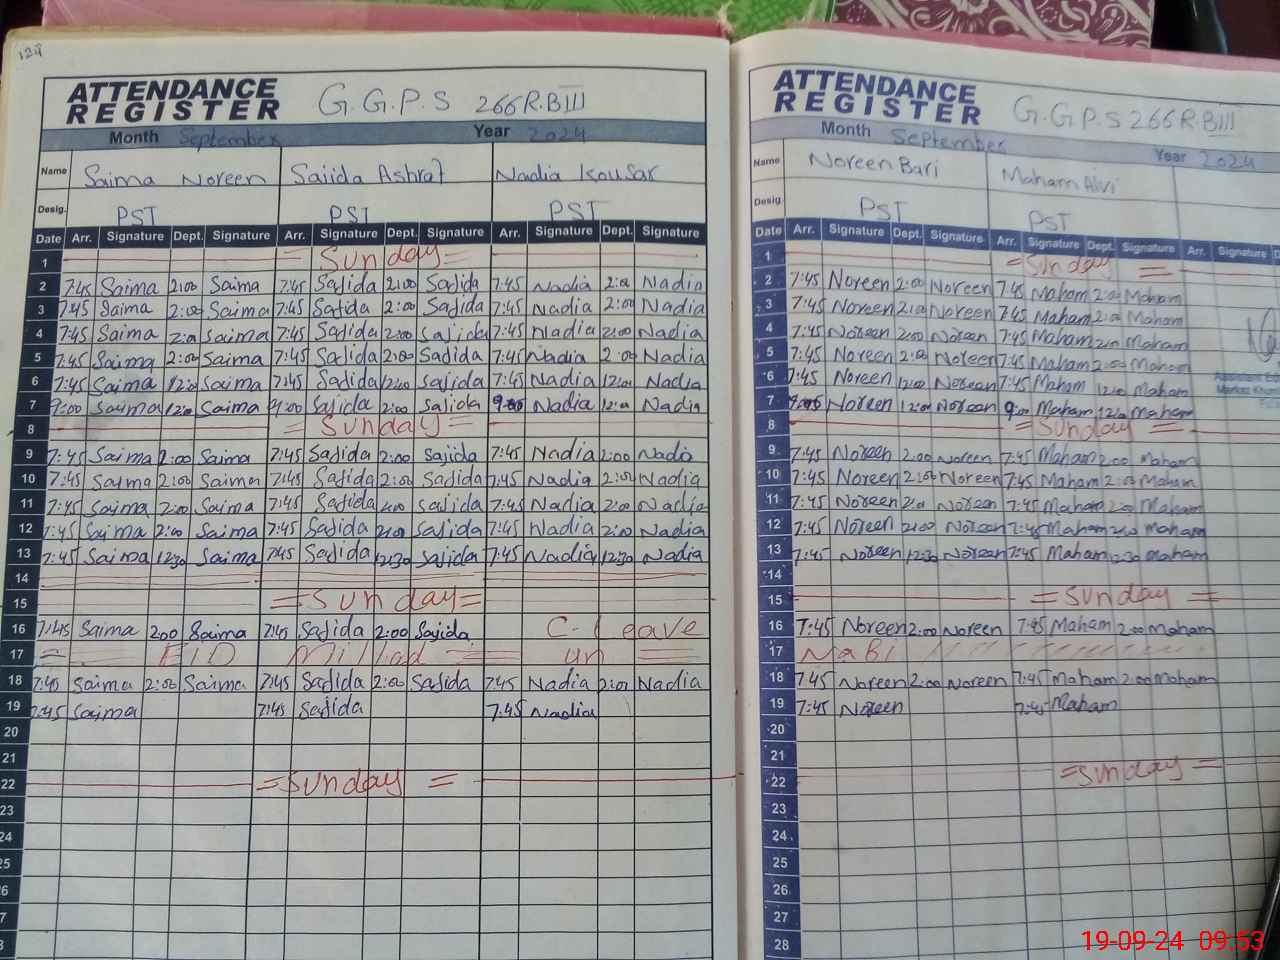 ATTENDANCE REGISTER G.G.P.S 266R.BIII
Month September Year 2024
Name Saima Noreen Sajida Ashraf Nadia Kousar
Desig. PST PST PST
Date Arr. Signature Dept. Signature Arr. Signature Dept. Signature Arr. Signature Dept. Signature
1 = Sunday =
2 7:45 Saima 2:00 Saima 7:45 Sajida 2:00 Sajida 7:45 Nadia 2:00 Nadia
3 7:45 Saima 2:00 Saima 7:45 Sajida 2:00 Sajida 7:45 Nadia 2:00 Nadia
4 7:45 Saima 2:00 Saima 7:45 Sajida 2:00 Sajida 7:45 Nadia 2:00 Nadia
5 7:45 Saima 2:00 Saima 7:45 Sajida 2:00 Sajida 7:45 Nadia 2:00 Nadia
6 7:45 Saima 12:00 Saima 7:45 Sajida 12:00 Sajida 7:45 Nadia 12:00 Nadia
7 9:00 Saima 12:00 Saima 9:00 Sajida 2:00 Sajida 9:00 Nadia 12:00 Nadia
8 = Sunday =
9 7:45 Saima 2:00 Saima 7:45 Sajida 2:00 Sajida 7:45 Nadia 2:00 Nadia
10 7:45 Saima 2:00 Saima 7:45 Sajida 2:00 Sajida 7:45 Nadia 2:00 Nadia
11 7:45 Saima 2:00 Saima 7:45 Sajida 2:00 Sajida 7:45 Nadia 2:00 Nadia
12 7:45 Saima 2:00 Saima 7:45 Sajida 2:00 Sajida 7:45 Nadia 2:00 Nadia
13 7:45 Saima 12:30 Saima 7:45 Sajida 12:30 Sajida 7:45 Nadia 12:30 Nadia
14
15 = Sunday =
16 7:45 Saima 2:00 Saima 7:45 Sajida 2:00 Sajida C-Leave
17 EID Millad un
18 7:45 Saima 2:00 Saima 7:45 Sajida 2:00 Sajida 7:45 Nadia 2:00 Nadia
19 7:45 Saima 7:45 Sajida 7:45 Nadia
20
21
22 = Sunday =
23
24
25
26
27
28
ATTENDANCE REGISTER G.G.P.S 266R.BIII
Month September Year 2024
Name Noreen Bari Maham Alvi
Desig. PST PST
Date Arr. Signature Dept. Signature Arr. Signature Dept. Signature Arr. Signature
1 = Sunday =
2 7:45 Noreen 2:00 Noreen 7:45 Maham 2:00 Maham
3 7:45 Noreen 2:00 Noreen 7:45 Maham 2:00 Maham
4 7:45 Noreen 2:00 Noreen 7:45 Maham 2:00 Maham
5 7:45 Noreen 2:00 Noreen 7:45 Maham 2:00 Maham
6 7:45 Noreen 12:00 Noreen 7:45 Maham 12:00 Maham
7 9:00 Noreen 12:00 Noreen 9:00 Maham 12:00 Maham
8 = Sunday =
9 7:45 Noreen 2:00 Noreen 7:45 Maham 2:00 Maham
10 7:45 Noreen 2:00 Noreen 7:45 Maham 2:00 Maham
11 7:45 Noreen 2:00 Noreen 7:45 Maham 2:00 Maham
12 7:45 Noreen 2:00 Noreen 7:45 Maham 2:00 Maham
13 7:45 Noreen 12:30 Noreen 7:45 Maham 12:30 Maham
14
15 = Sunday =
16 7:45 Noreen 2:00 Noreen 7:45 Maham 2:00 Maham
17 Nabi
18 7:45 Noreen 2:00 Noreen 7:45 Maham 2:00 Maham
19 7:45 Noreen 7:45 Maham
20
21
22 = Sunday =
23
24
25
26
27
28
19-09-24 09:53